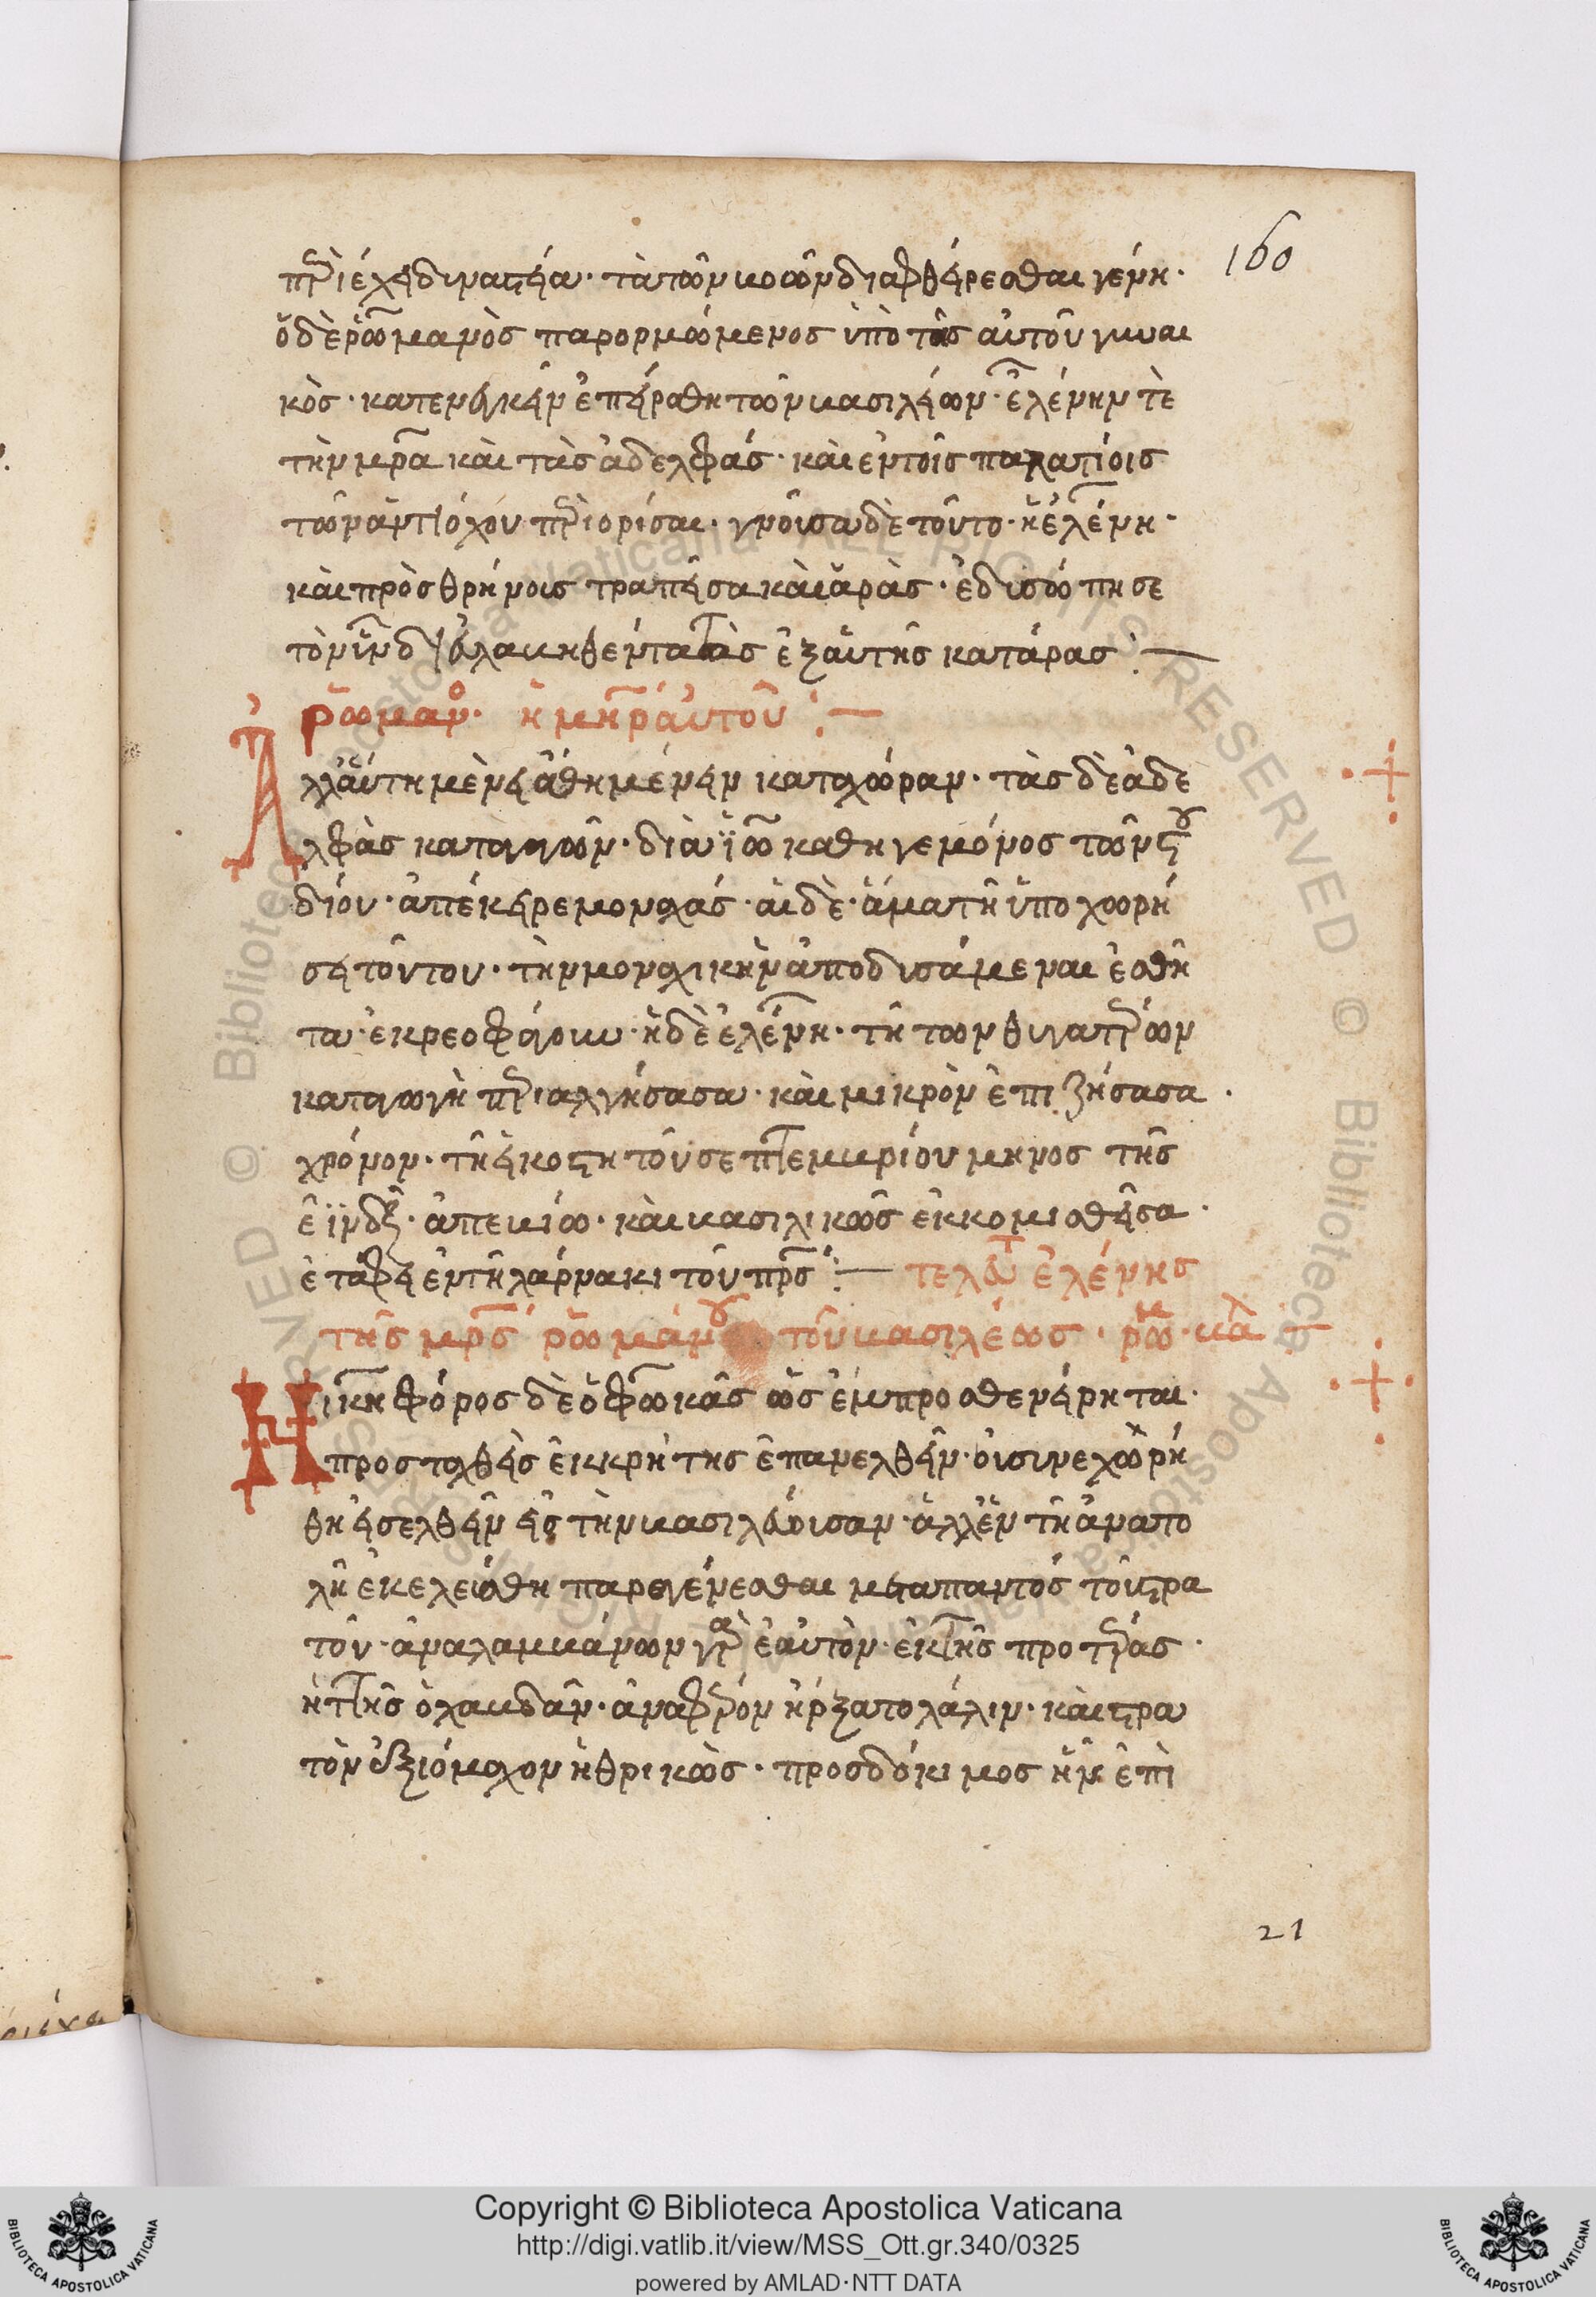 160
πριέχει δυναστεία· τὰ τῶν βοῶν διαφθείρεσθαι γένη·
ὁ δὲ ῥωμανὸς παρορμώμενος ὑπὸ τῆς αὐτοῦ γυναι
κὸς· κατενεγκεῖν ἐπειράθη τῶν βασιλείων· ἑλένην τὲ
τὴν μρα καὶ τὰς ἀδελφάς· καὶ ἐν τοῖς παλατίοις
τῶν ἀντιόχου πριορίσαι· γνοῦσα δὲ τοῦτο· ἡ ἑλένη·
καὶ πρὸς θρήνοις τραπεῖσα καὶ ἀρὰς· ἐδυσώπησε
τὸν ὑὸν
ἐξ αὐτῆς κατάρας :—
ῥωμαν· ἡ μηρ αὐτοῦ :—
Ἀλλ' αὕτη μὲν εἰάθη μένειν κατα χώραν· τὰς δὲ ἀδε
λφὰς καταγαγὼν· διὰ ἰω καθηγεμόνος τῶν στου
δίου· ἀπέκειρε μοναχάς· αἱ δὲ· ἅμα τῆ ὑποχωρή
σει τούτου· τὴν μοναχικὴν ἀποδυσάμεναι ἐσθῆ
τα· ἐκρεοφάγουν· ἡ δὲ ἑλένη· τῆ τῶν θυγατρων
καταγωγῆ πριαλγήσασα· καὶ μικρὸν ἐπιζήσασα·
χρόνον· τῆ εἰκοστη τοῦ σεπτεμβρίου μηνος τῆς
ε ϊνδξ· ἀπεβίω· καὶ βασιλικῶς ἐκκομισθεῖσα·
ἐτάφει ἐν τῆ λάρνακι τοῦ πρς :— τελευτ ἑλένης
τῆς μρς ῥωμάνου τοῦ βασιλέως· ῥωμ· κα λ
Νικηφόρος δὲ ὁ φωκᾶς ὡς ἔμπροσθεν εἴρηται·
προσταχθεὶς ἐκ κρήτης ἐπανελθεῖν· οὐ συνεχωρή
θη εἰσελθεῖν εἰς τὴν βασιλεύουσαν· ἀλλ' ἐν τῆ ἀνατο
λῆ ἐκελεύσθη παραγένεσθαι μετα παντός τοῦ στρα
τοῦ· ἀναλαμβάνων γρα ἑαυτὸν· ἐκ τῆς προτρας·
ἥττης ὁ χαμβδᾶν· ἀναφρον ἤρξατο πάλιν· καὶ στρα
τὸν ἀξιόμαχον ἠθρικὼς· προσδόκιμος ἦν ἐπὶ
21
Copyright © Biblioteca Apostolica Vaticana
http://digi.vatlib.it/view/MSS_Ott.gr.340/0325
powered by AMLAD·NTT DATA